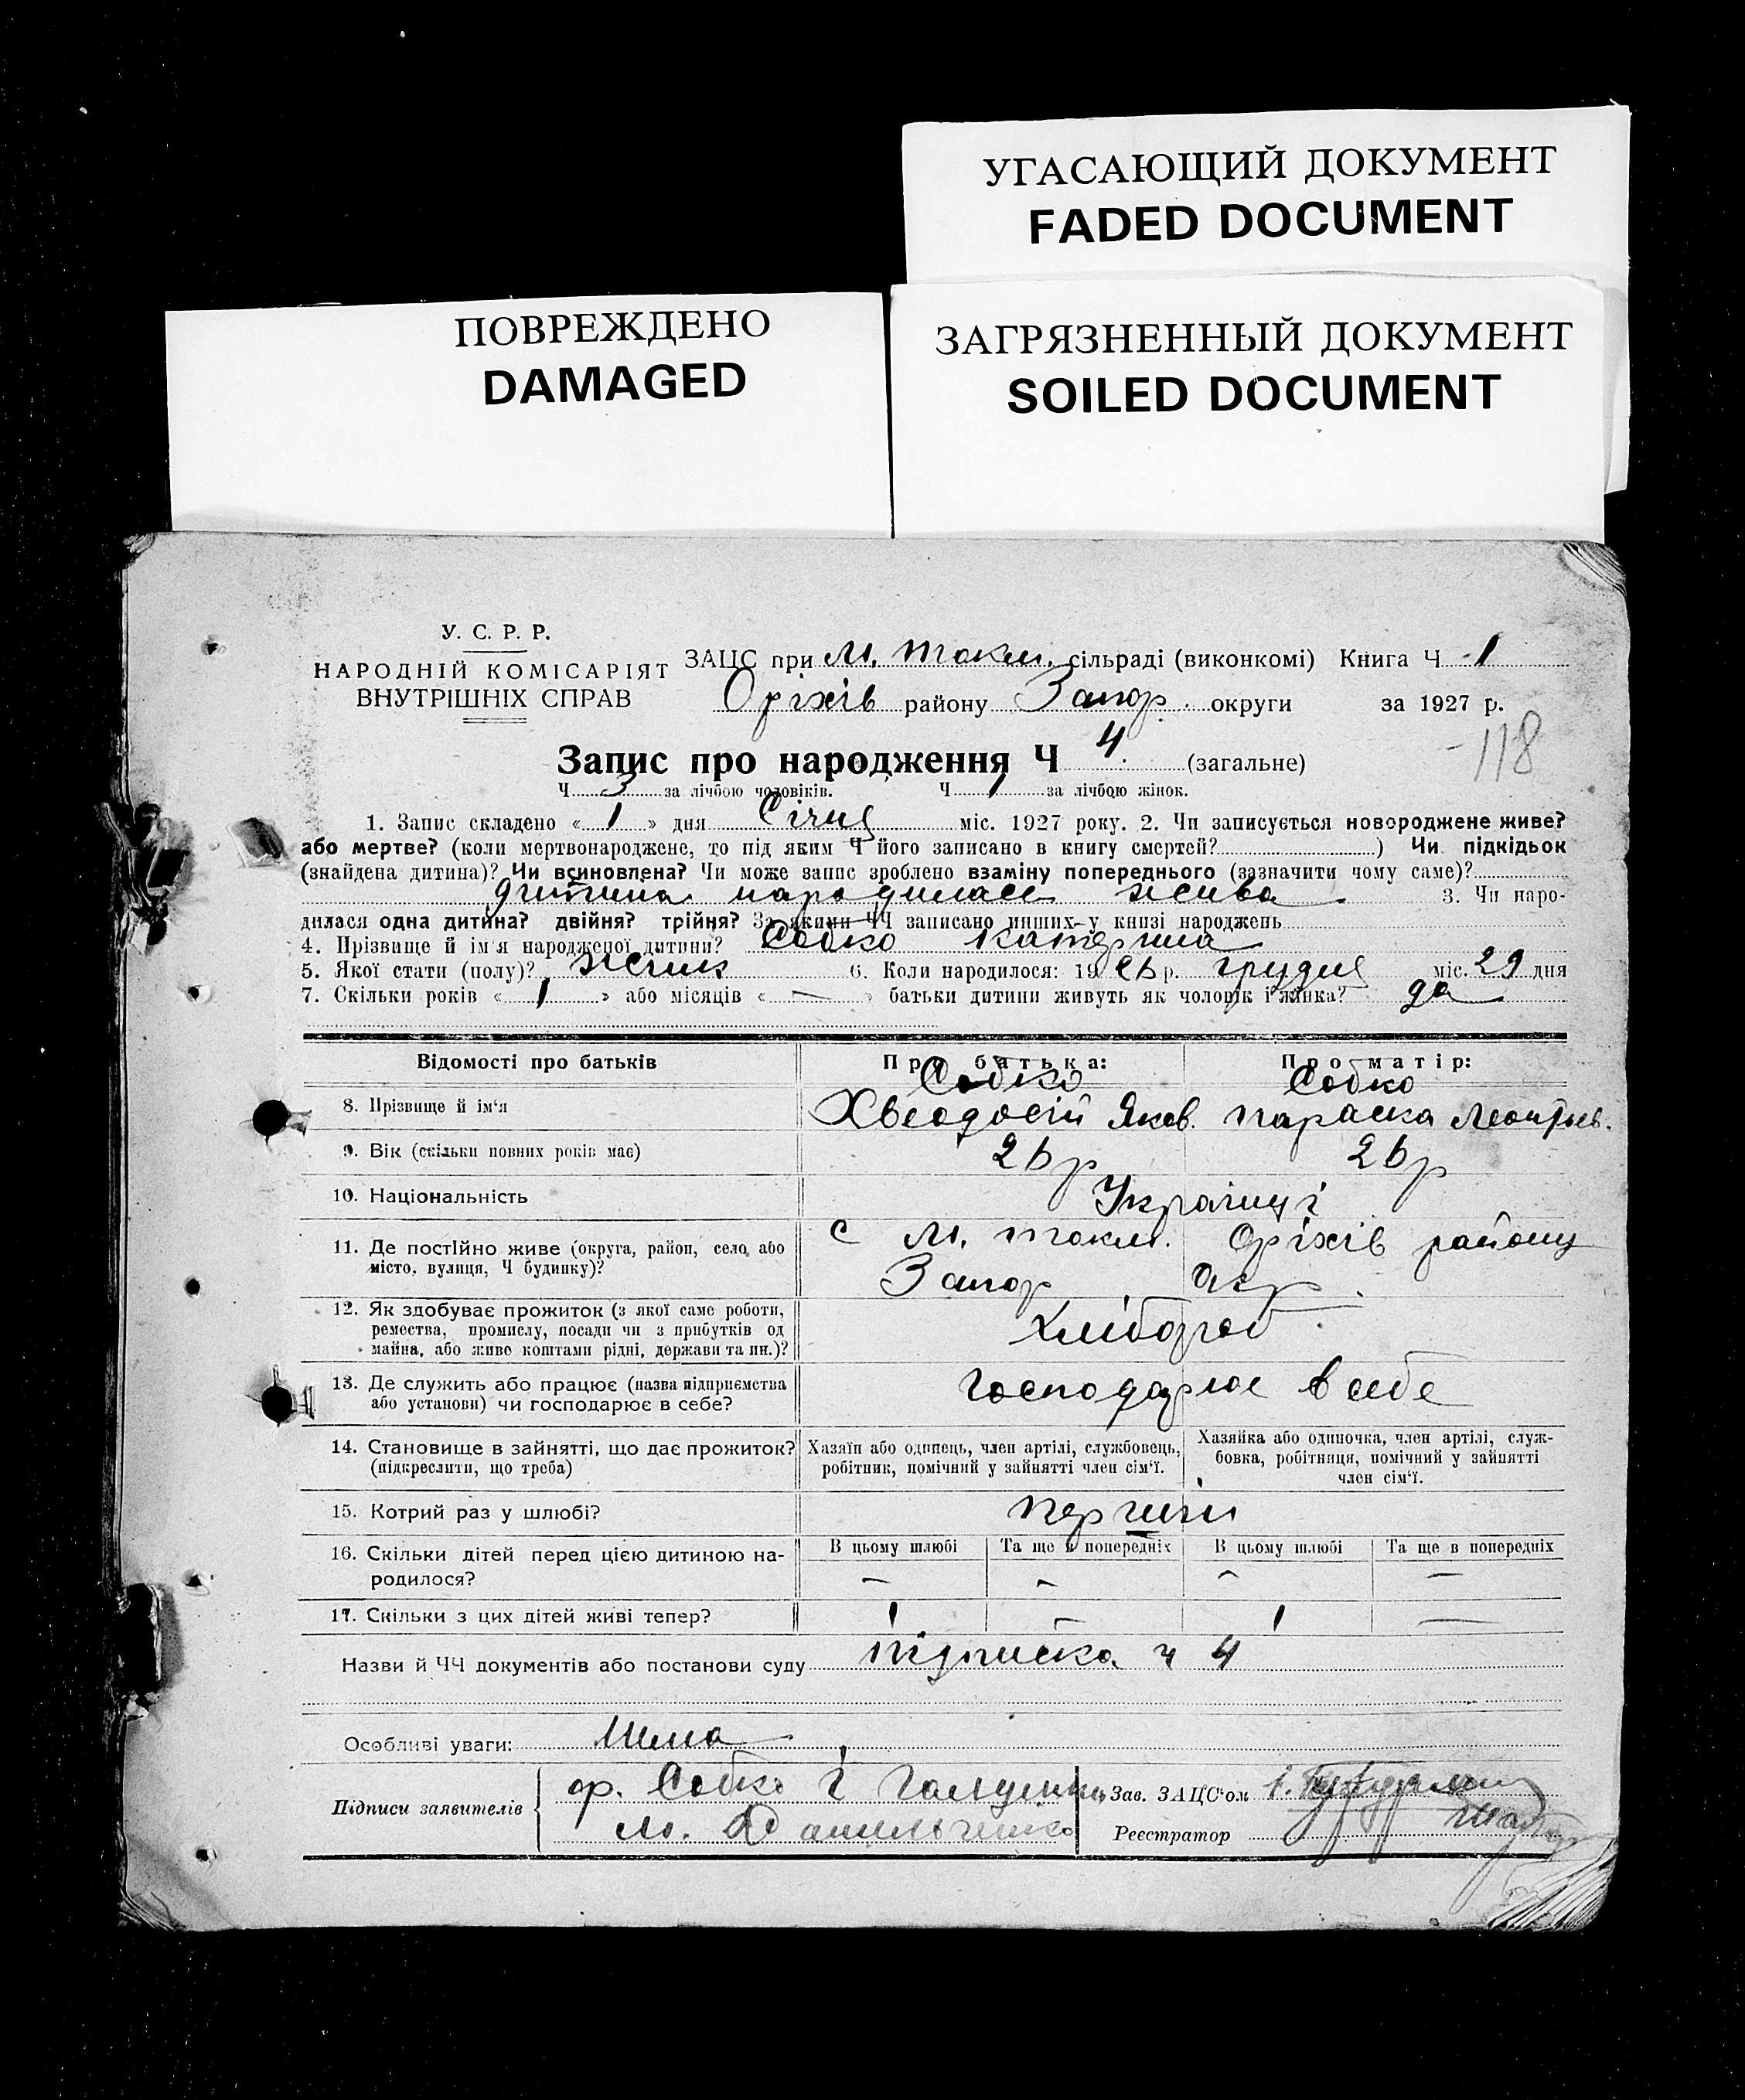 УГАСАЮЩИЙ ДОКУМЕНТ
FADED DOCUMENT
ПОВРЕЖДЕНО
DAMAGED
ЗАГРЯЗНЕННЫЙ ДОКУМЕНТ
SOILED DOCUMENT
У. С. Р. Р.
НАРОДНІЙ КОМІСАРІЯТ
ВНУТРІШНІХ СПРАВ
ЗАЦС при М. Токм. сільраді (виконкомі) Книга Ч 1
Оріхів району Запор. округи за 1927 р.
118
Запис про народження Ч 4. (загальне)
Ч 3 за лічбою чоловіків. Ч 1 за лічбою жінок.
1. Запис складено « 1 » дня Січня міс. 1927 року. 2. Чи записується новороджене живе?
або мертве? (коли мертвонароджене, то під яким Ч його записано в книгу смертей?) Чи підкідьок
(знайдена дитина)? Чи всиновлена? Чи може запис зроблено взаміну попереднього (зазначити чому саме)?
дитина народилась жива. 3. Чи наро-
дилася одна дитина? двійня? трійня? За якими ЧЧ записано инших у книзі народжень
4. Прізвище й ім'я народженої дитини? Собко Катерина
5. Якої стати (полу)? жінк 6. Коли народилося: 1926 р. грудня міс. 29 дня
7. Скільки років « 1 » або місяців « — » батьки дитини живуть як чоловік і жінка? да
Відомості про батьків Про батька: Про матір:
Собко Собко
8. Прізвище й ім'я Хведосій Яков. Параска Леонтьев.
9. Вік (скільки повних років має) 26 р 26 р
10. Національність Українці
11. Де постійно живе (округа, район, село, або
місто, вулиця, Ч будинку)?
с М. Токм. Оріхів району
Запор окр.
12. Як здобуває прожиток (з якої саме роботи,
ремества, промислу, посади чи з прибутків од
майна, або живе коштами рідні, держави та ин.)?
Хлібороб.
13. Де служить або працює (назва підприємства
або установи) чи господарює в себе?
господарює в себе
14. Становище в зайнятті, що дає прожиток?
(підкреслити, що треба)
Хазяїн або одинець, член артілі, службовець,
робітник, помічний у зайнятті член сім'ї.
Хазяйка або одиночка, член артілі, служ-
бовка, робітниця, помічний у зайнятті
член сім'ї.
15. Котрий раз у шлюбі? перший
16. Скільки дітей перед цією дитиною на-
родилося?
В цьому шлюбі Та ще в попередніх В цьому шлюбі Та ще в попередніх
— — — —
17. Скільки з цих дітей живі тепер? 1 — 1 —
Назви й ЧЧ документів або постанови суду підписка ч 4
Особливі уваги: Нема
Підписи заявителів
ф. Собко і
М. Данильченко
Зав. ЗАЦС'ом
Реєстратор